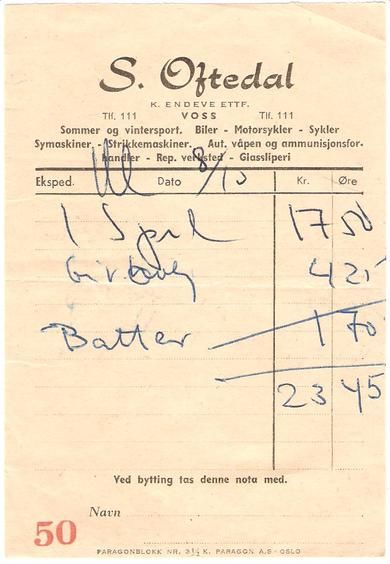 S. Oftedal
K. ENDEVE ETTF.
Tlf. 111 VOSS Tlf. 111
Sommer og vintersport. Biler - Motorsykler - Sykler
Symaskiner. - Strikkemaskiner. Aut. våpen og ammunisjonsfor-
handler - Rep. verksted - Glassliperi
Eksped. Dato 8/10 Kr. Øre
1 17 50
4 25
Batter 1 70
23 45
Ved bytting tas denne nota med.
Navn
50
PARAGONBLOKK NR. 3½ K. PARAGON A.S - OSLO